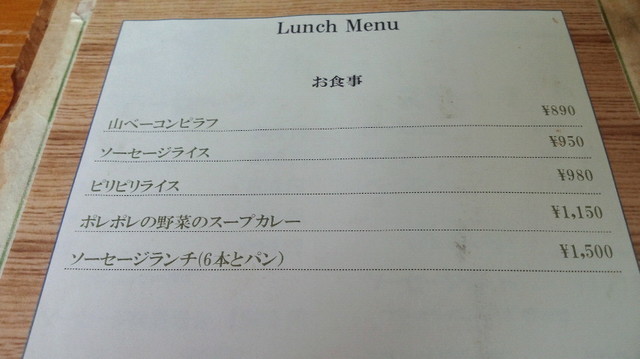 Lunch Menu
お食事
山ベーコンピラフ ¥890
ソーセージライス ¥950
ピリピリライス ¥980
ポレポレの野菜のスープカレー ¥1,150
ソーセージランチ(6本とパン) ¥1,500